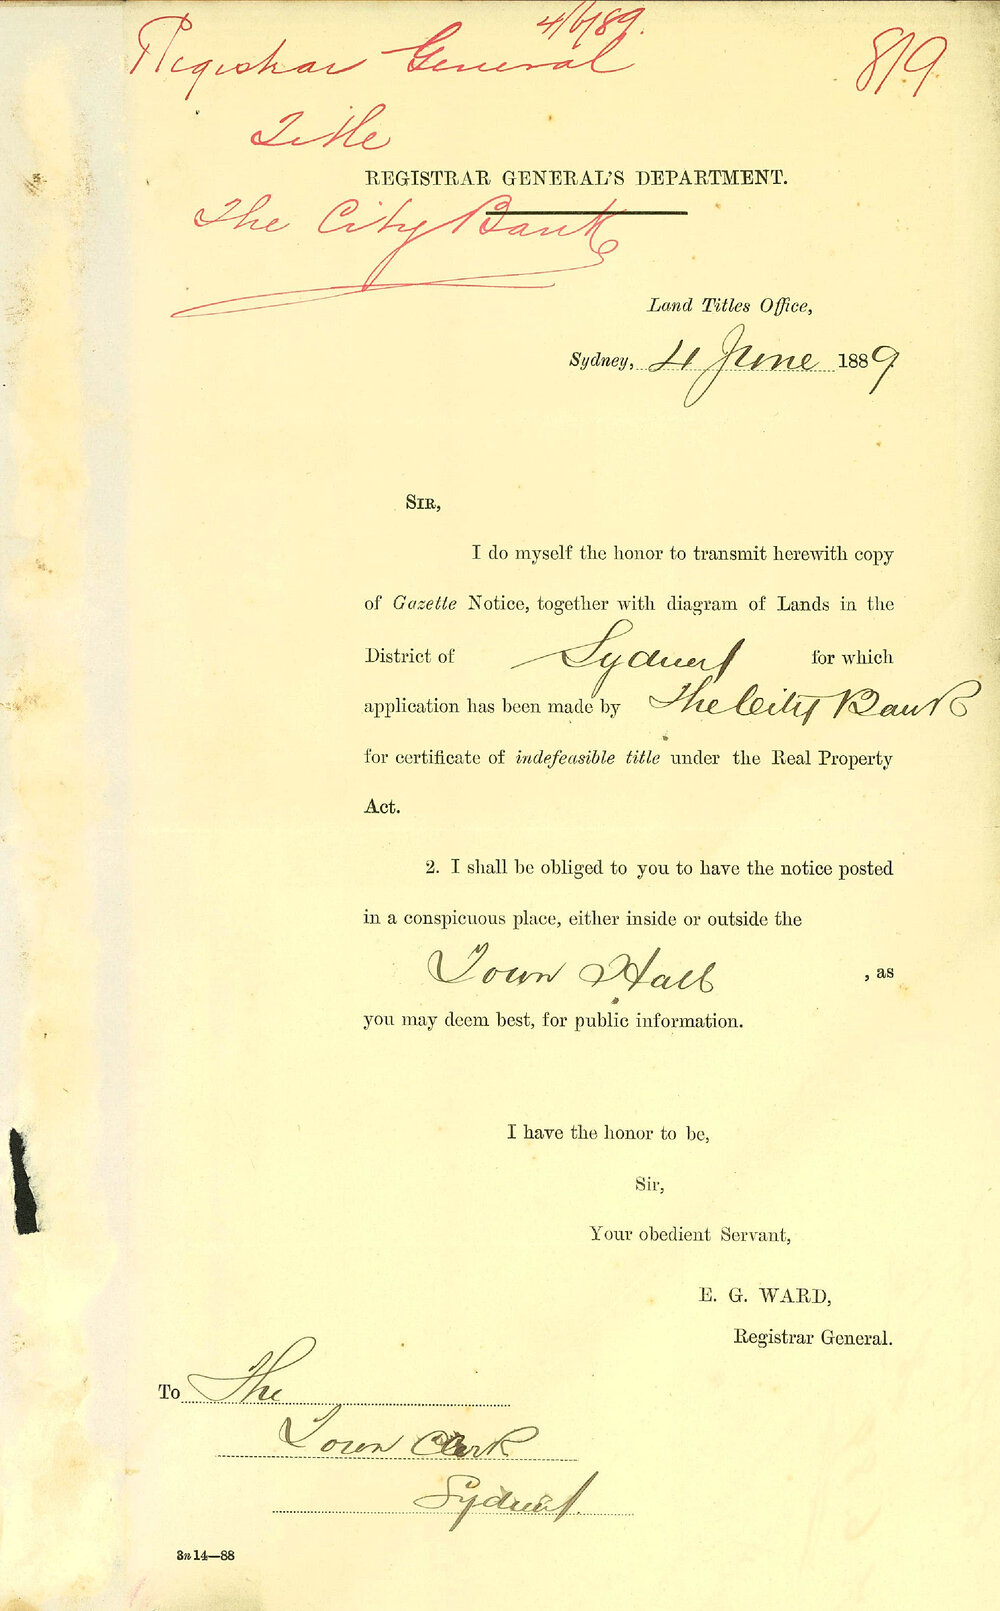 4/6/89.
Registrar General
819
Title
REGISTRAR GENERAL'S DEPARTMENT.
The City Bank
Land Titles Office,
Sydney, 4 June 1889
SIR,
I do myself the honor to transmit herewith copy
of Gazette Notice, together with diagram of Lands in the
District of Sydney for which
application has been made by The City Bank
for certificate of indefeasible title under the Real Property
Act.
2. I shall be obliged to you to have the notice posted
in a conspicuous place, either inside or outside the
Town Hall , as
you may deem best, for public information.
I have the honor to be,
Sir,
Your obedient Servant,
E. G. WARD,
Registrar General.
To The
Town Clerk
Sydney.
3n 14—88